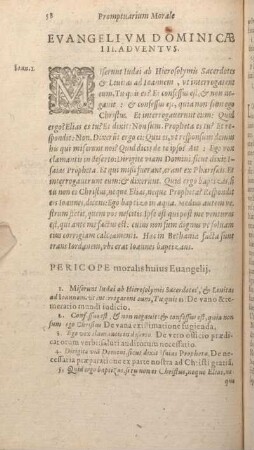 38 Promptuarium Morale
EVANGELIVM DOMINICÆ
III. ADVENTVS.
Ioan. 1. Miserunt Iudæi ab Hierosolymis Sacerdotes
& Leuitas ad Ioannem, vt interrogarent
eum, Tu quis es? Et confessus est, & non
negauit: & confessus est, quia non sum ego
Christus. Et interrogauerunt eum: Quid
ergo? Elias es tu? Et dixit: Non sum. Propheta es tu? Et re-
spondit: Non. Dixerunt ergo ei: Quis es, vt responsum demus
his qui miserunt nos? Quid dicis de te ipso? Ait: Ego vox
clamantis in deserto: Dirigite viam Domini, sicut dixit
Isaias Propheta. Et qui missi fuerant, erant ex Pharisæis. Et
interrogauerunt eum & dixerunt ei: Quid ergo baptizas, si
tu non es Christus, neque Elias, neque Propheta? Respondit
eis Ioannes, dicens: Ego baptizo in aqua, medius autem ve-
strum stetit, quem vos nescitis. Ipse est, qui post me venturus
est, qui ante me factus est: cuius non sum dignus vt soluam
eius corrigiam calceamenti. Hæc in Bethania facta sunt
trans Iordanem, vbi erat Ioannes baptizans.
PERICOPE moralis huius Euangelij.
1. Miserunt Iudæi ab Hierosolymis Sacerdotes, & Leuitas
ad Ioannem, vt interrogarent eum, Tu quis es? De vano & te-
merario mundi iudicio.
2. Confessus est, & non negauit: & confessus est, quia non
sum ego Christus. De vana existimatione fugienda.
3. Ego vox clamantis in deserto. De vero officio prædi-
catorum verbi saluti auditorum necessario.
4. Dirigite viā Domini sicut dixit Isaias Propheta. De ne-
cessaria præparatione ex parte nostra ad Christi gratiā.
5. Quid ergo baptizas, si tu non es Christus, neque Elias, ne-
que